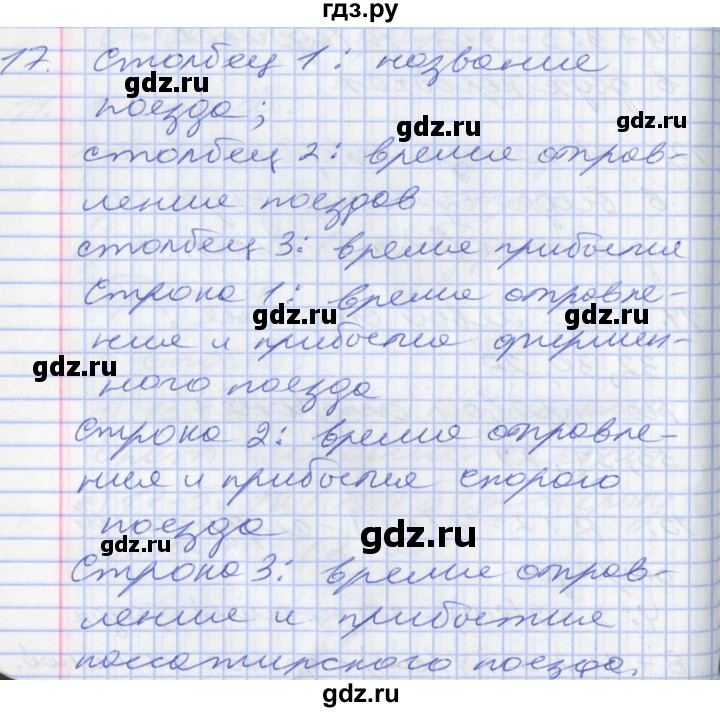 гдз.ру
17. Столбец 1: название
gdz.ru
поезда;
gdz.ru
gdz.ru
столбец 2: время отправ-
ление поездов
столбец 3: время прибытия
Строка 1: время отправле-
gdz.ru
gdz.ru
ния и прибытия фирмен-
gdz.ru
ного поезда
Строка 2: время отправле-
ния и прибытия скорого
поезда
gdz.ru
gdz.ru
Строка 3: время отправ-
ление и прибытие
пассажирского поезда.
gdz.ru